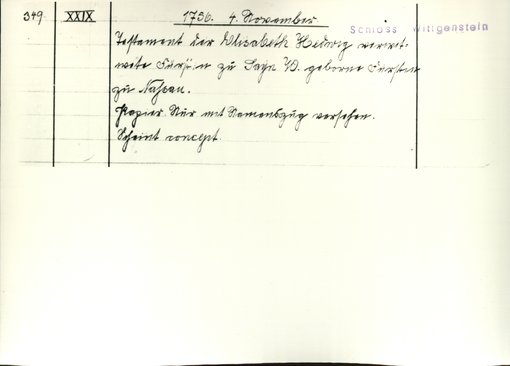 349 XXIX 1736. 4. November.
Schloss Wittgenstein
Testament der Elisabeth Hedwig verwit-
wete Fürstin zu Sayn W. geborne Fürstin
zu Nassau.
Papier. Nur mit Namenszug versehen.
Scheint concept.